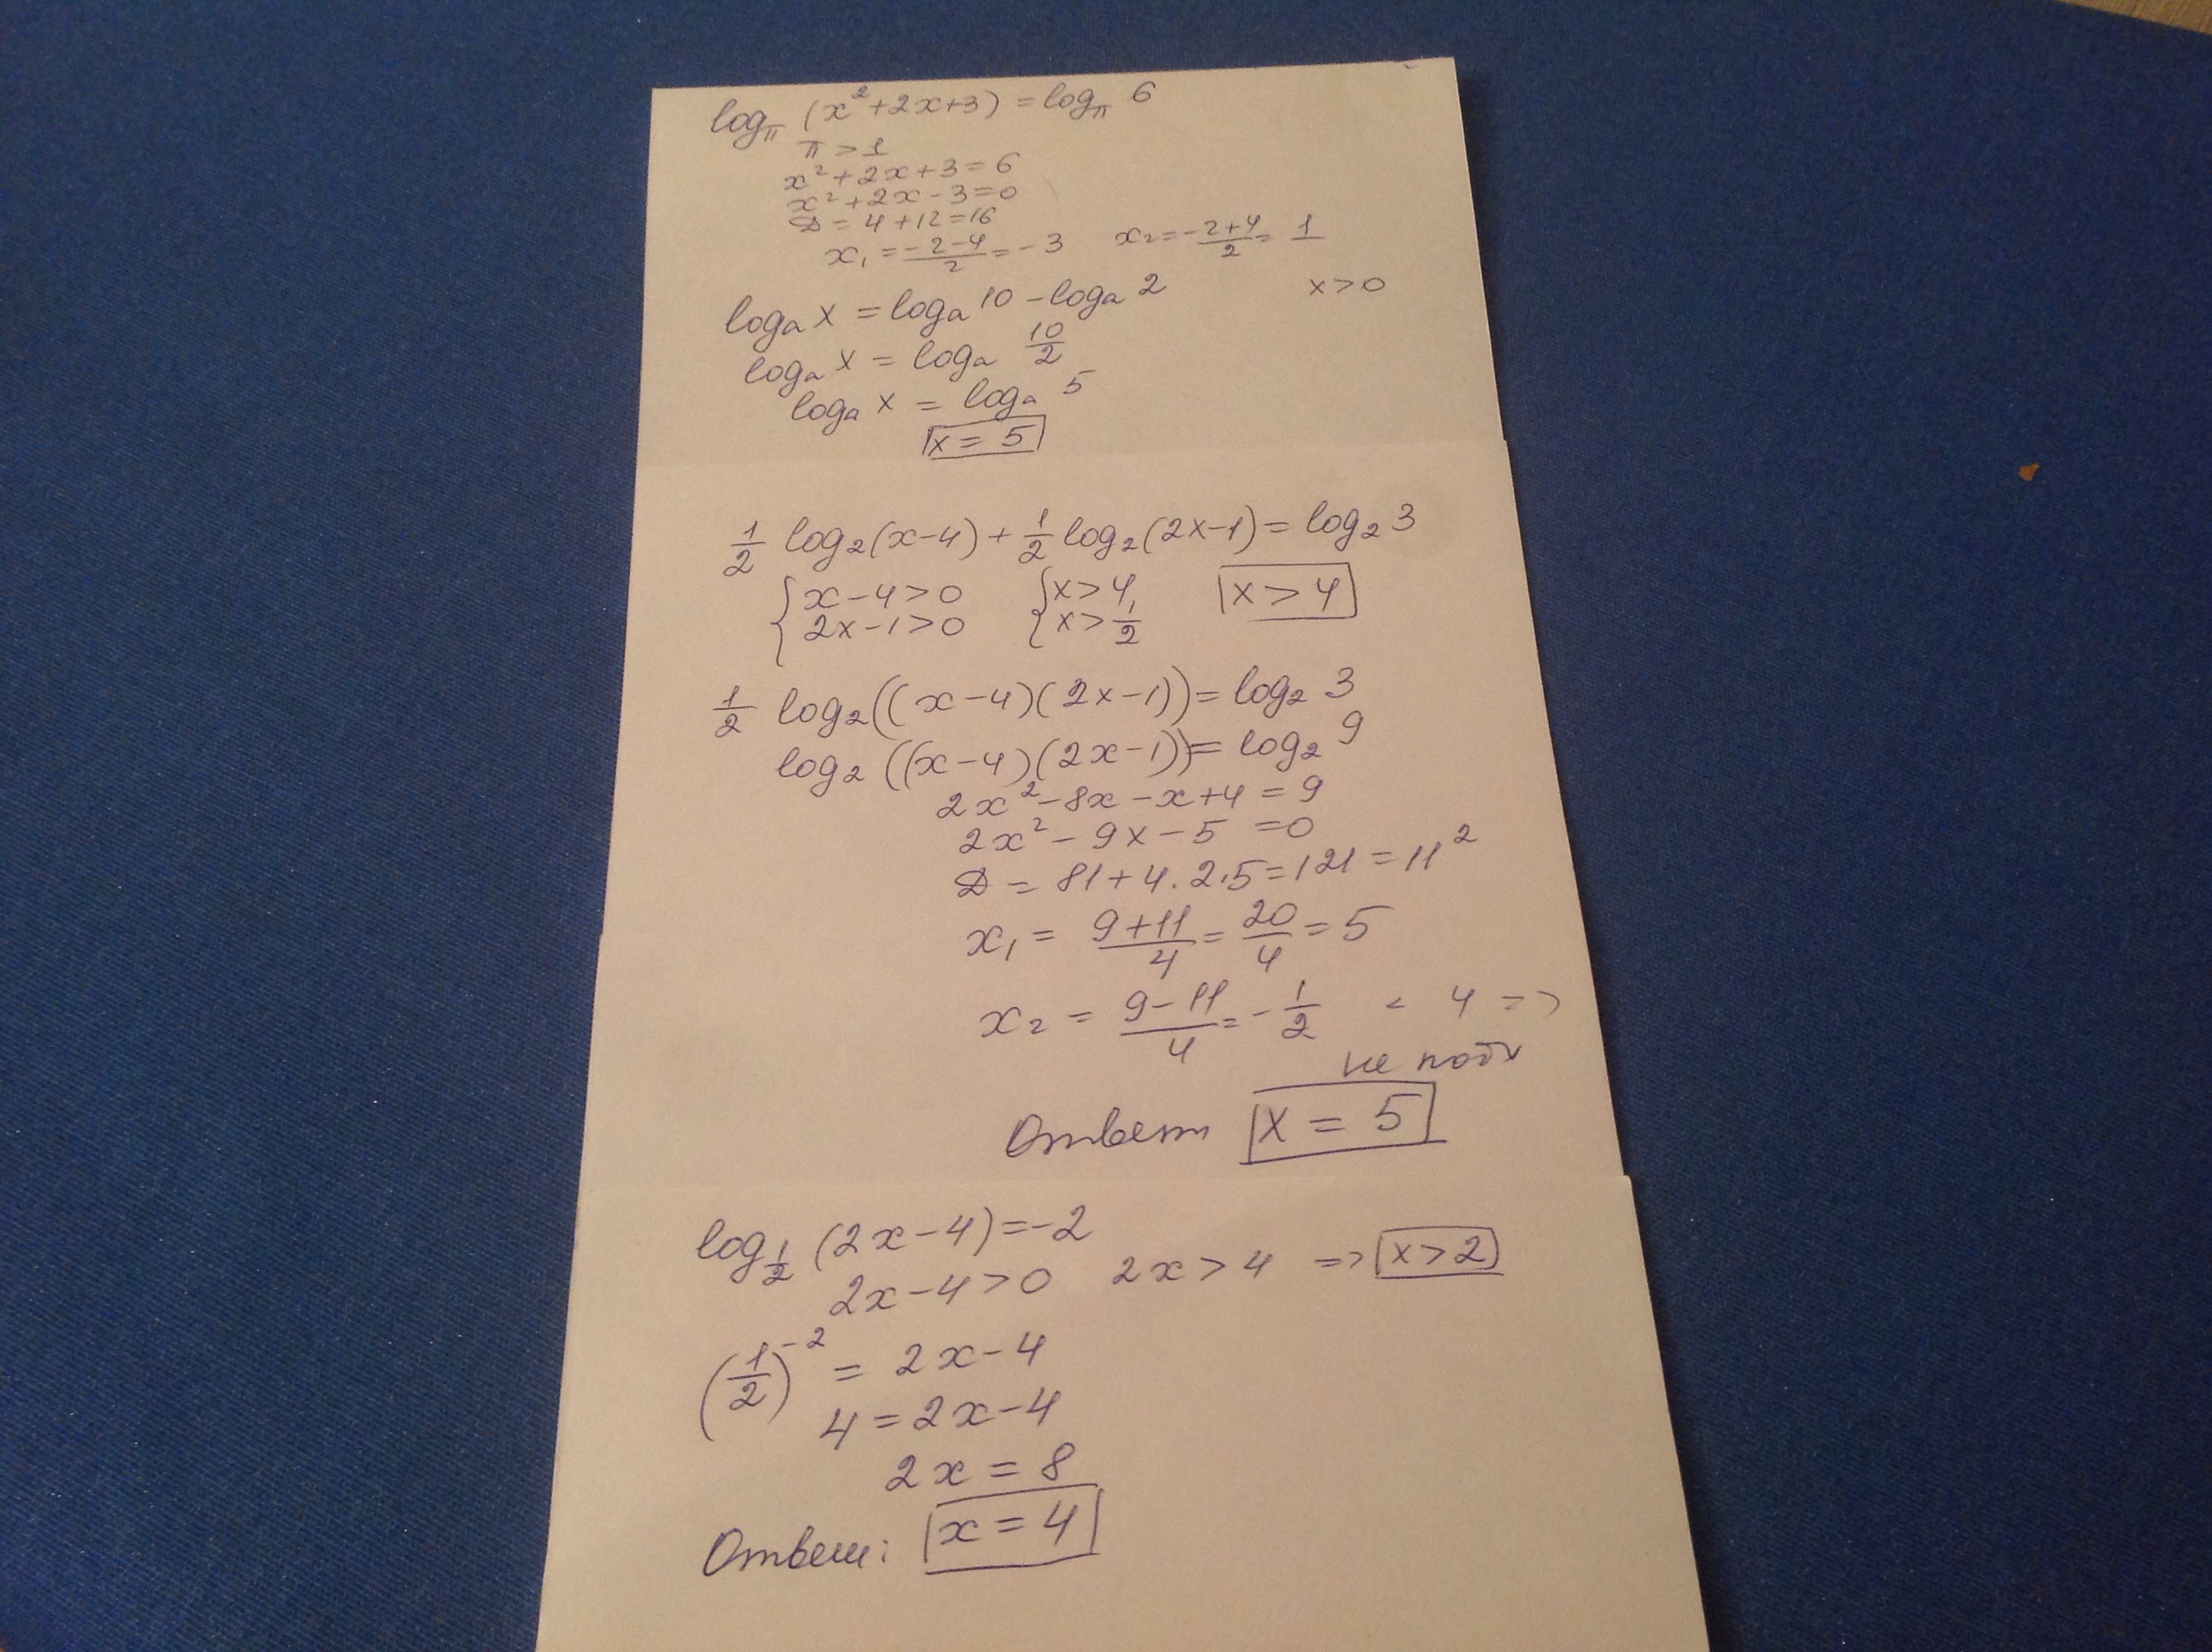 log_π (x² + 2x + 3) = log_π 6
π > 1
x² + 2x + 3 = 6
x² + 2x - 3 = 0
D = 4 + 12 = 16
x₁ = (-2-4)/2 = -3   x₂ = (-2+4)/2 = 1
logₐ x = logₐ 10 - logₐ 2   x > 0
logₐ x = logₐ 10/2
logₐ x = logₐ 5
x = 5
1/2 log₂(x-4) + 1/2 log₂(2x-1) = log₂ 3
{ x-4 > 0   { x > 4,   x > 4
{ 2x-1 > 0   { x > 1/2
1/2 log₂((x-4)(2x-1)) = log₂ 3
log₂((x-4)(2x-1)) = log₂ 9
2x² - 8x - x + 4 = 9
2x² - 9x - 5 = 0
D = 81 + 4·2·5 = 121 = 11²
x₁ = (9+11)/4 = 20/4 = 5
x₂ = (9-11)/4 = -1/2 < 4 =>
не подх
Ответ x = 5
log_{1/2} (2x-4) = -2
2x-4 > 0   2x > 4 => x > 2
(1/2)⁻² = 2x-4
4 = 2x-4
2x = 8
Ответ: x = 4